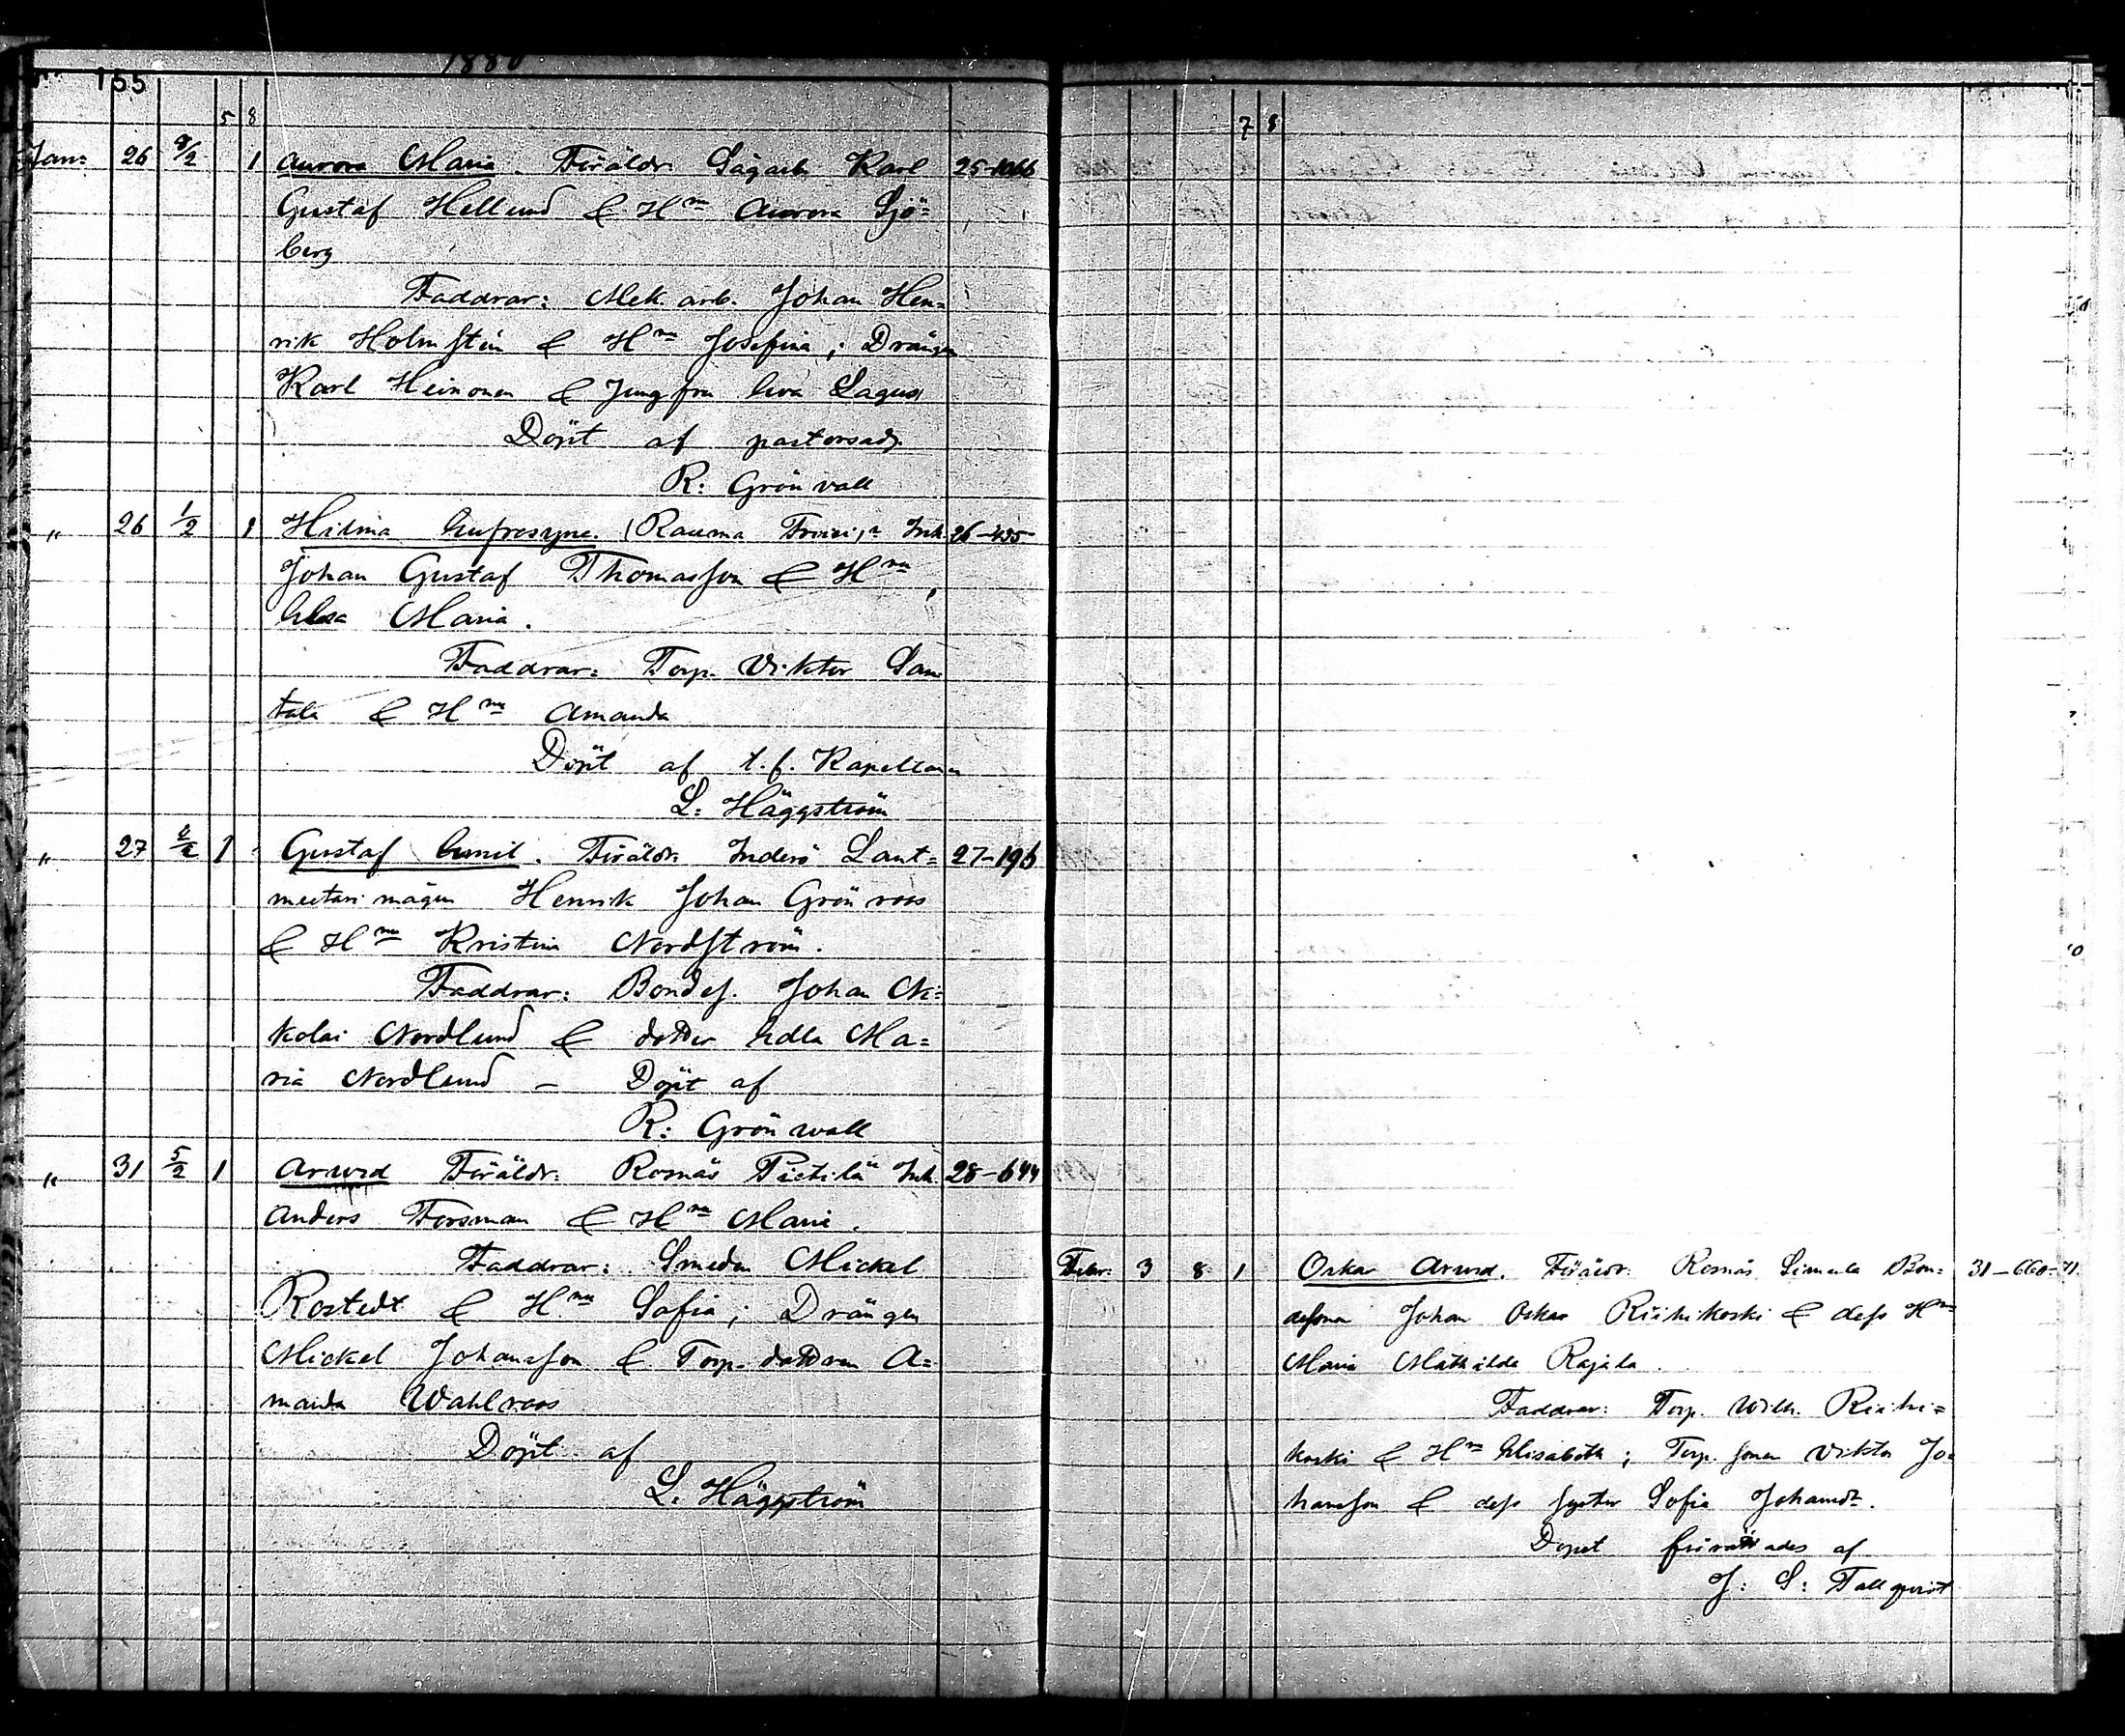 1880
155
5 8
Jan: 26 8/2 1 Aurora Maria. Föräldr. Sågarb. Karl 25-1066
Gustaf Hellund & Hnu Aurora Sjö=
berg
Faddrar: Mek. arb. Johan Hen=
rik Holmstén & Hnu Josefina; Drängen
Karl Heinonen & Jungfru Eva Lagus
Döpt af pastorsadj.
R: Grönvall
" 26 1/2 1 Hilma Eufrosyne. (Rauma Inh. 26-435
Johan Gustaf Thomasson & Hnu
Maria.
Faddrar: Torp. Viktor San
tala & Hnu Amanda
Döpt af t.f. Kapellanen
L: Häggström
" 27 2/2 1 Gustaf Emil. Föräldr. Inderö Lant= 27-196
meetari mågen Henrik Johan Grönroos
& Hnu Kristina Nordström.
Faddrar: Bondes. Johan Ni=
kolai Nordlund & dotter Edla Ma=
ria Nordlund – Döpt af
R: Grönwall
" 31 5/2 1 Arwid Föräldr: Rosnäs Pietilä Inh. 28-644
Anders Forsman & Hnu Maria.
Faddrar: Smeden Mickel
Rostedt & Hnu Sofia; Drängen
Mickel Johansson & Torp. dottren A=
manda Wahlroos
Döpt af
L: Häggström
7 8
Febr. 3 8 1 Oskar Arwid. Föräldr: Rosnäs Simula Bon= 31-660-71
desonen Johan Oskar Riihikoski & dess Hnu
Maria Mathilda Rajala.
Faddrar: Torp. Wilh. Riihi=
koski & Hnu Elisabeth; Torp. sonen Viktor Jo=
hansson & dess syster Sofia Johansdr.
Dopet förrättades af
J: S: Tallqvist